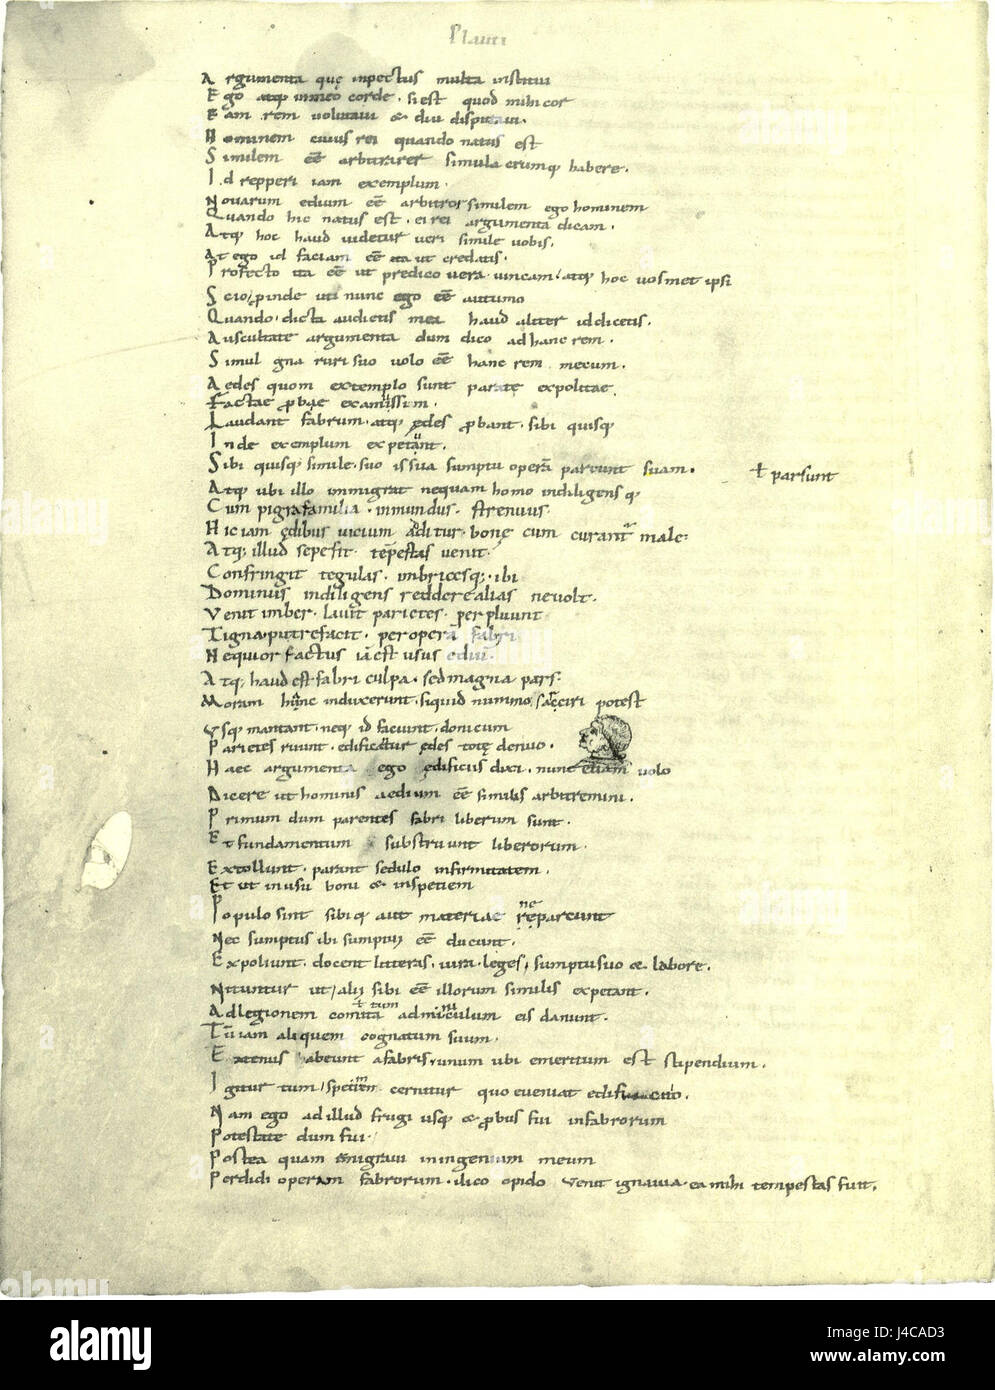 Plauti
Argumenta quę inpectus multa institui
Ego atq; inmeo corde· si est quod mihi cor
Eam rem volutavi & diu disputavi·
Hominem cuius rei quando natus est
Similem eē arbitrarer simula crumq; habere·
Id repperi iam exemplum·
Novarum edium eē arbitror similem ego hominem
Quando hic natus est· ei rei argumenta dicam·
Atq; hoc haud videtur veri simile vobis·
At ego id faciam eē ita ut credatis·
Profecto ita eē ut predico vera vincam/ atq; hoc vosmet ipsi
Scio/ pinde uti nunc ego eē autumo
Quando· dicta audietis mea haud aliter id dicetis·
Auscultate argumenta dum dico ad hanc rem·
Simul gna ruri suo volo eē hanc rem mecum·
Aedes quom extemplo sunt parate expolitae
Factae pbae examissim·
Laudant fabrum· atq; ędes pbant· sibi quisq;
Inde exemplum expetant·
Sibi quisq; simile· suo issua sumptu operā parcunt suam·
ł parsunt
Atq; ubi illo immigrat nequam homo indiligensq;
Cum pigra familia· inmundus· strenuus·
Hic iam ędibus vicium additur· bonę cum curantr male:
Atq; illud sepe fit· tēpestas venit·
Confringit tegulas· imbricesq;· ibi
Dominus indiligens reddere alias nevolt·
Venit imber· lavit parietes· perpluunt
Tigna· putrefacit· per operā fabri
Nequior factus iā est usus ediū·
Atq; haud est fabri culpa· sed magna pars:
Moram hanc induxerunt· siquid nummo sarciri potest
Usq; mantant· neq; id faciunt· donicum
Parietes ruunt· edificatur ędes totę denuo·
Haec argumenta ego ędificiis dixi· nunc etiam volo
Dicere ut hominis aedium eē similis arbitremini·
Primum dum parentes fabri liberum sunt·
Et fundamentum substruunt liberorum·
Extollunt· parant sedulo infirmitatem·
Et ut in usu boni & in spetiem
Populo sint sibiq; aut materiae ne reparcunt
Nec sumptus ibi sumptui eē ducunt·
Expoliunt· docent litteras· iura· leges/ sumptu suo & labore·
Nituntur ut/ alii sibi eē illorum similis expetant·
Ad legionem comita ł tum adminiculum eis danunt·
Tū iam aliquem cognatum suum·
Extenus abeunt a fabris· unum ubi emeritum est stipendium·
Igitur tum/ specimen cernitur quo eveniat edificatio·
Nam ego ad illud frugi usq; & pbus fui in fabrorum
Potestate dum fui·
Postea quam migravi in ingenium meum
Perdidi operam fabrorum· ilico opido venit ignavia· ea mihi tempestas fuit·
alamy
alamy stock photo
J4CAD3
www.alamy.com